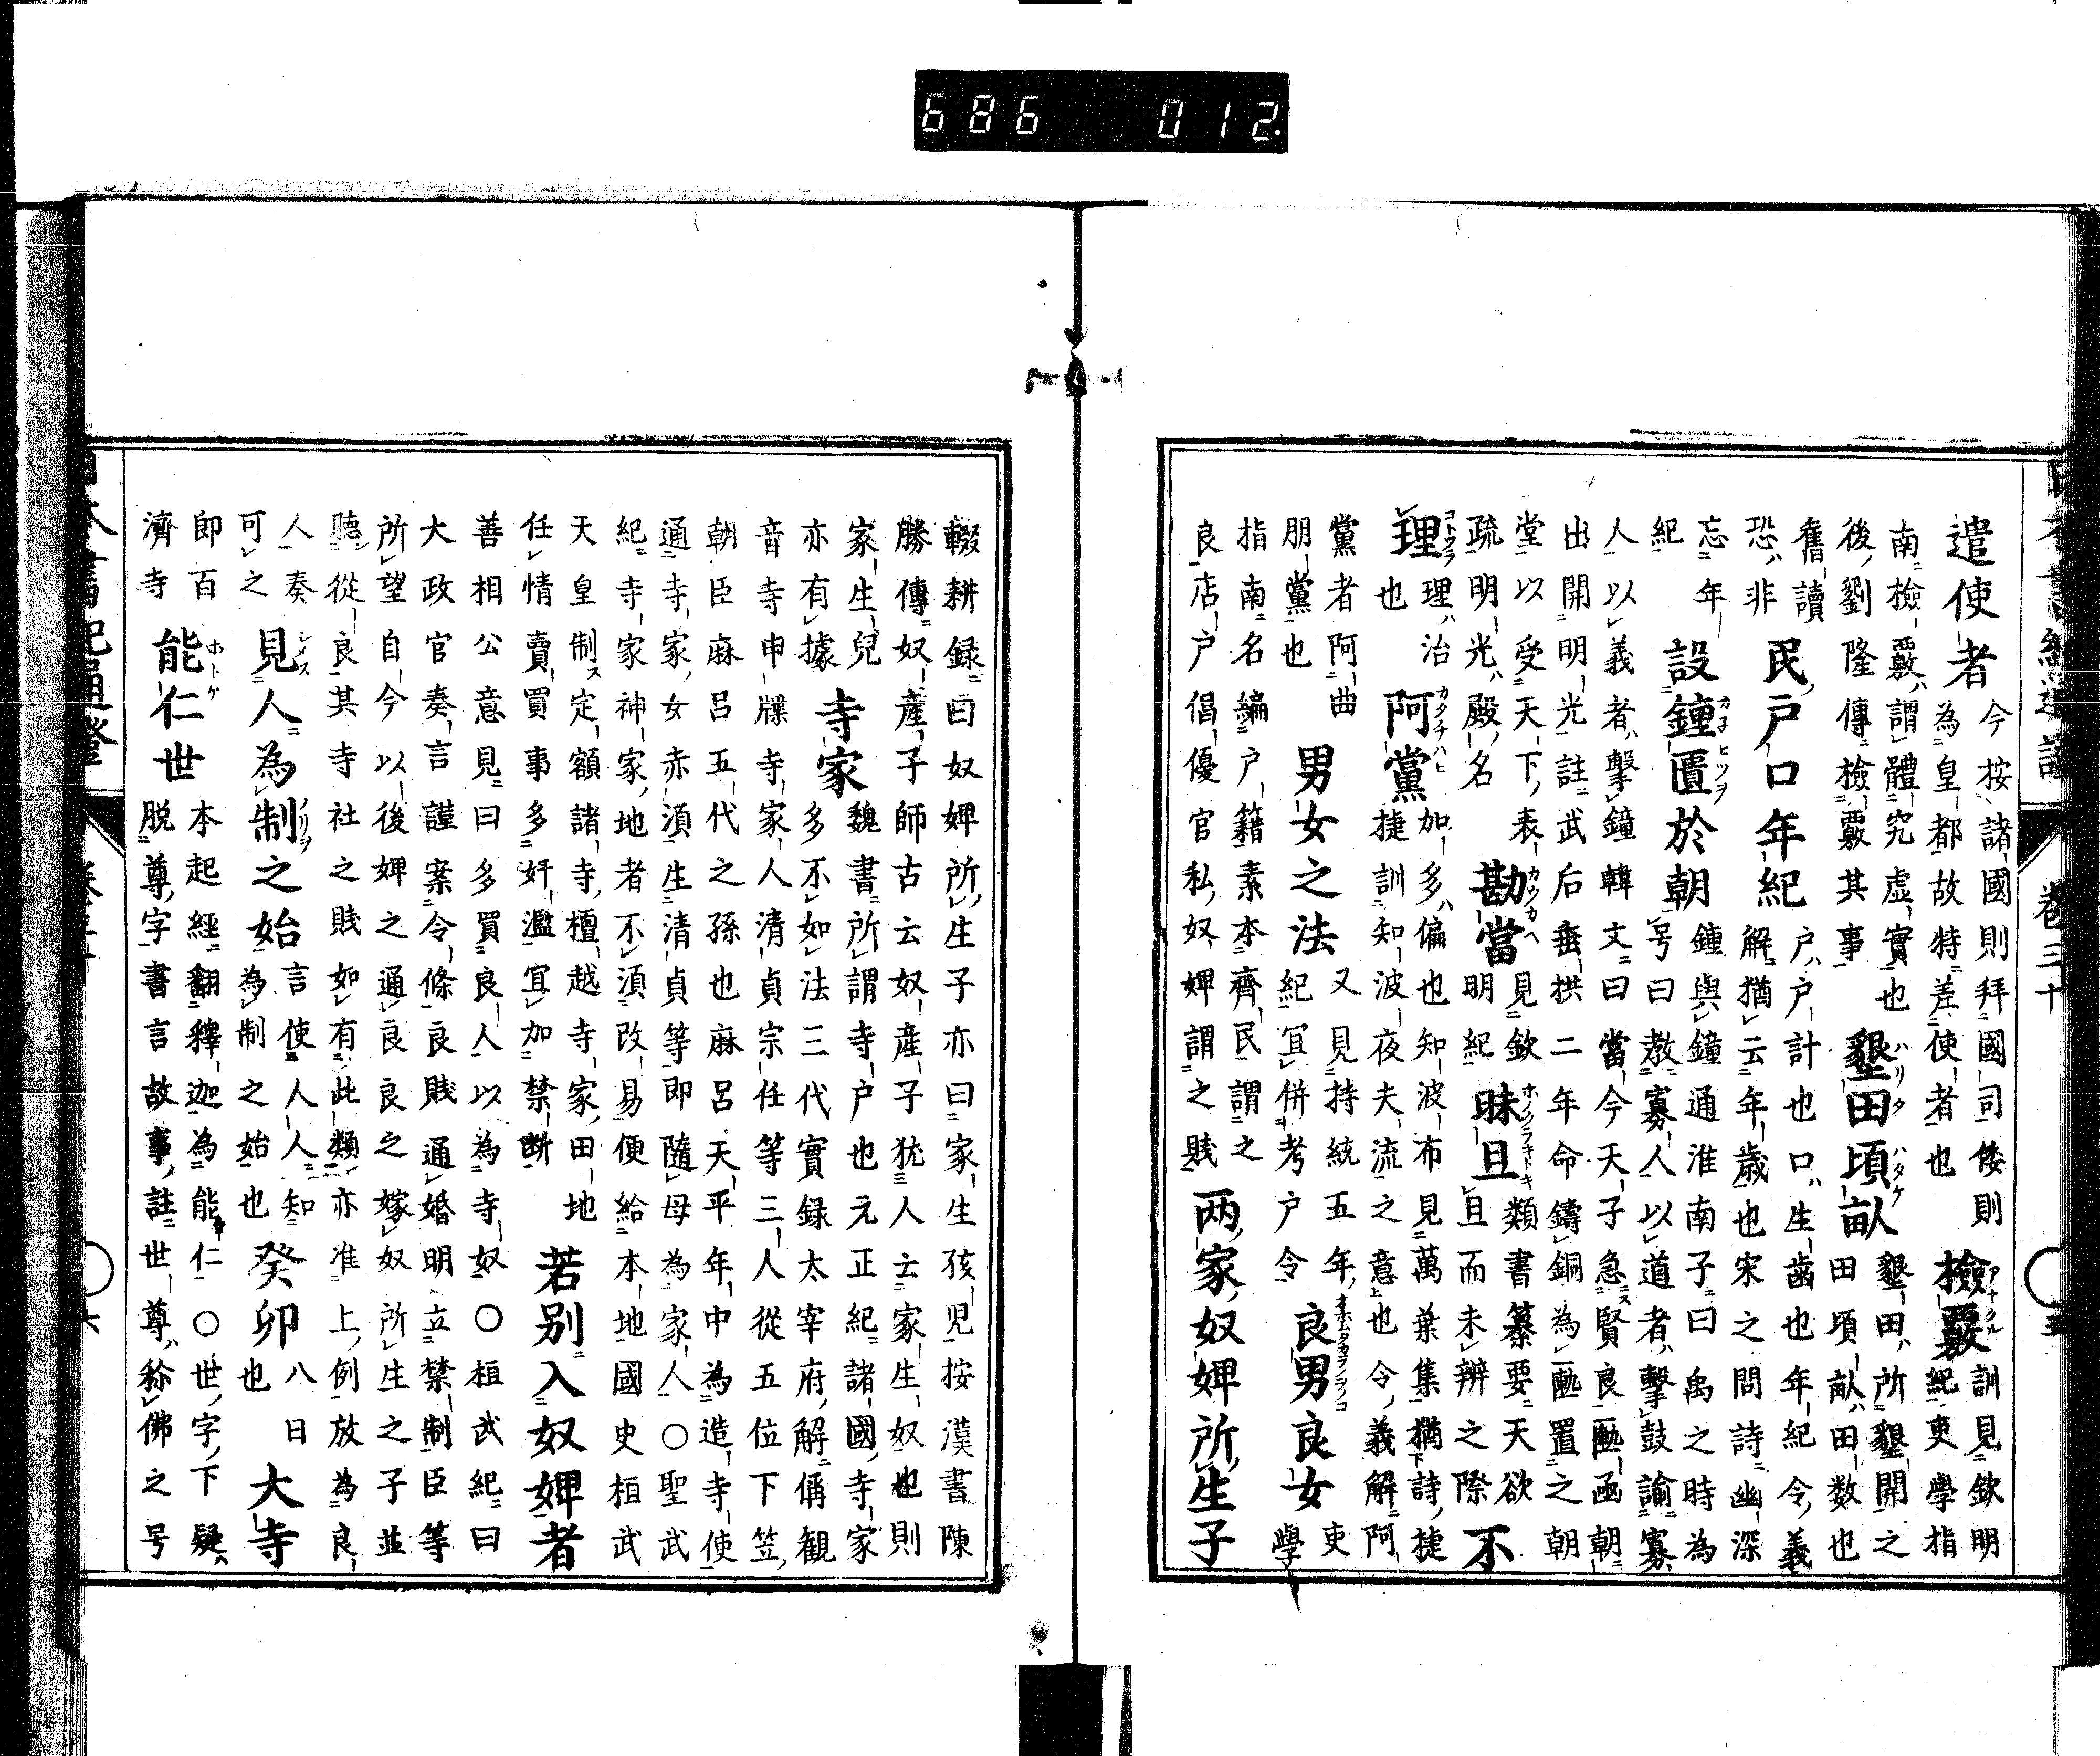 卷三十 五
遣使者
今按諸國則拜國司倭則
為皇都故特差使者也
檢覈
訓見欽明
紀吏學指
南檢覈謂體究虚實也
後劉隆傳檢覈其事
墾田頃畝
墾田所墾開之
田頃畝田数也
舊讀
恐非
民戸口年紀
戸戸計也口生歯也年紀令義
解猶云年歳也宋之問詩幽深
忘年
紀
設鐘匱於朝
鐘與鐘通淮南子曰禹之時為
号曰教寡人以道者擊鼓諭寡
人以義者擊鐘韓文曰當今天子急賢良匭函朝
出開明光註武后垂拱二年命鑄銅為匭置之朝
堂以受天下表
疏明光殿名
勘當
見欽
明紀
昧旦
類書纂要天欲
旦而未辨之際
不
理
理治
也
阿黨
加多偏也知波布見萬葉集猶詩捷
捷訓知波夜夫流之意也令義解阿
黨者阿曲
朋黨也
男女之法
又見持統五年
紀宜併考戸令
良男良女
吏
學
指南名編戸籍素本齊民謂之
良店戸倡優官私奴婢謂之賤
两家奴婢所生子
輟耕録曰奴婢所生子亦曰家生孩児按漢書陳
勝傳奴產子師古云奴產子犹人云家生奴也則
家生兒
亦有據
寺家
魏書所謂寺戸也元正紀諸國寺家
多不如法三代實録太宰府解偁観
音寺申牒寺家人清貞宗任等三人從五位下笠
朝臣麻呂五代之孫也麻呂天平年中為造寺使
通寺家女赤湏生清貞等即隨母為家人○聖武
紀寺家神家地者不湏改易便給本地國史桓武
天皇制定額諸寺檀越寺家田地
任情賣買事多奸濫宜加禁断
若別入奴婢者
善相公意見曰多買良人以為寺奴○桓武紀曰
大政官奏言謹案令條良賤通婚明立禁制臣等
所望自今以後婢之通良良之嫁奴所生之子並
聽從良其寺社之賤如有此類亦准上例放為良
人奏
可之
見人為制之始
言使人人知
為制之始也
癸卯
八日
也
大寺
即百
濟寺
能仁世
本起經翻釋迦為能仁○世字下疑
脱尊字書言故事註世尊称佛之号